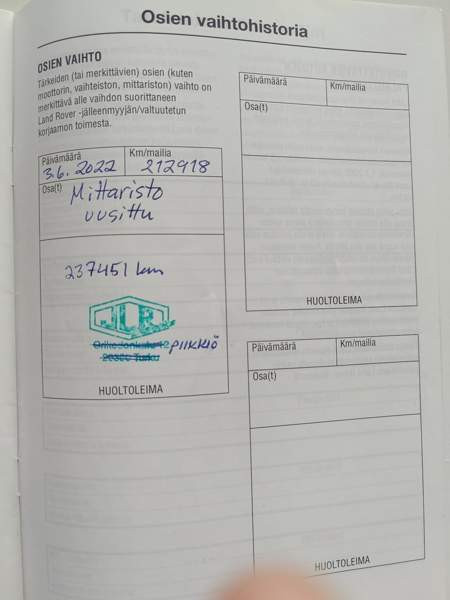 Osien vaihtohistoria
OSIEN VAIHTO
Tärkeiden (tai merkittävien) osien (kuten
moottorin, vaihteiston, mittariston) vaihto on
merkittävä alle vaihdon suorittaneen
Land Rover -jälleenmyyjän/valtuutetun
korjaamon toimesta.
Päivämäärä
Km/mailia
3.6.2022
212918
Osa(t)
Mittaristo
uusittu
237451 km
JLR
Orikedonkatu 12 PIIKKIÖ
20380 Turku
HUOLTOLEIMA
Päivämäärä
Km/mailia
Osa(t)
HUOLTOLEIMA
Päivämäärä
Km/mailia
Osa(t)
HUOLTOLEIMA